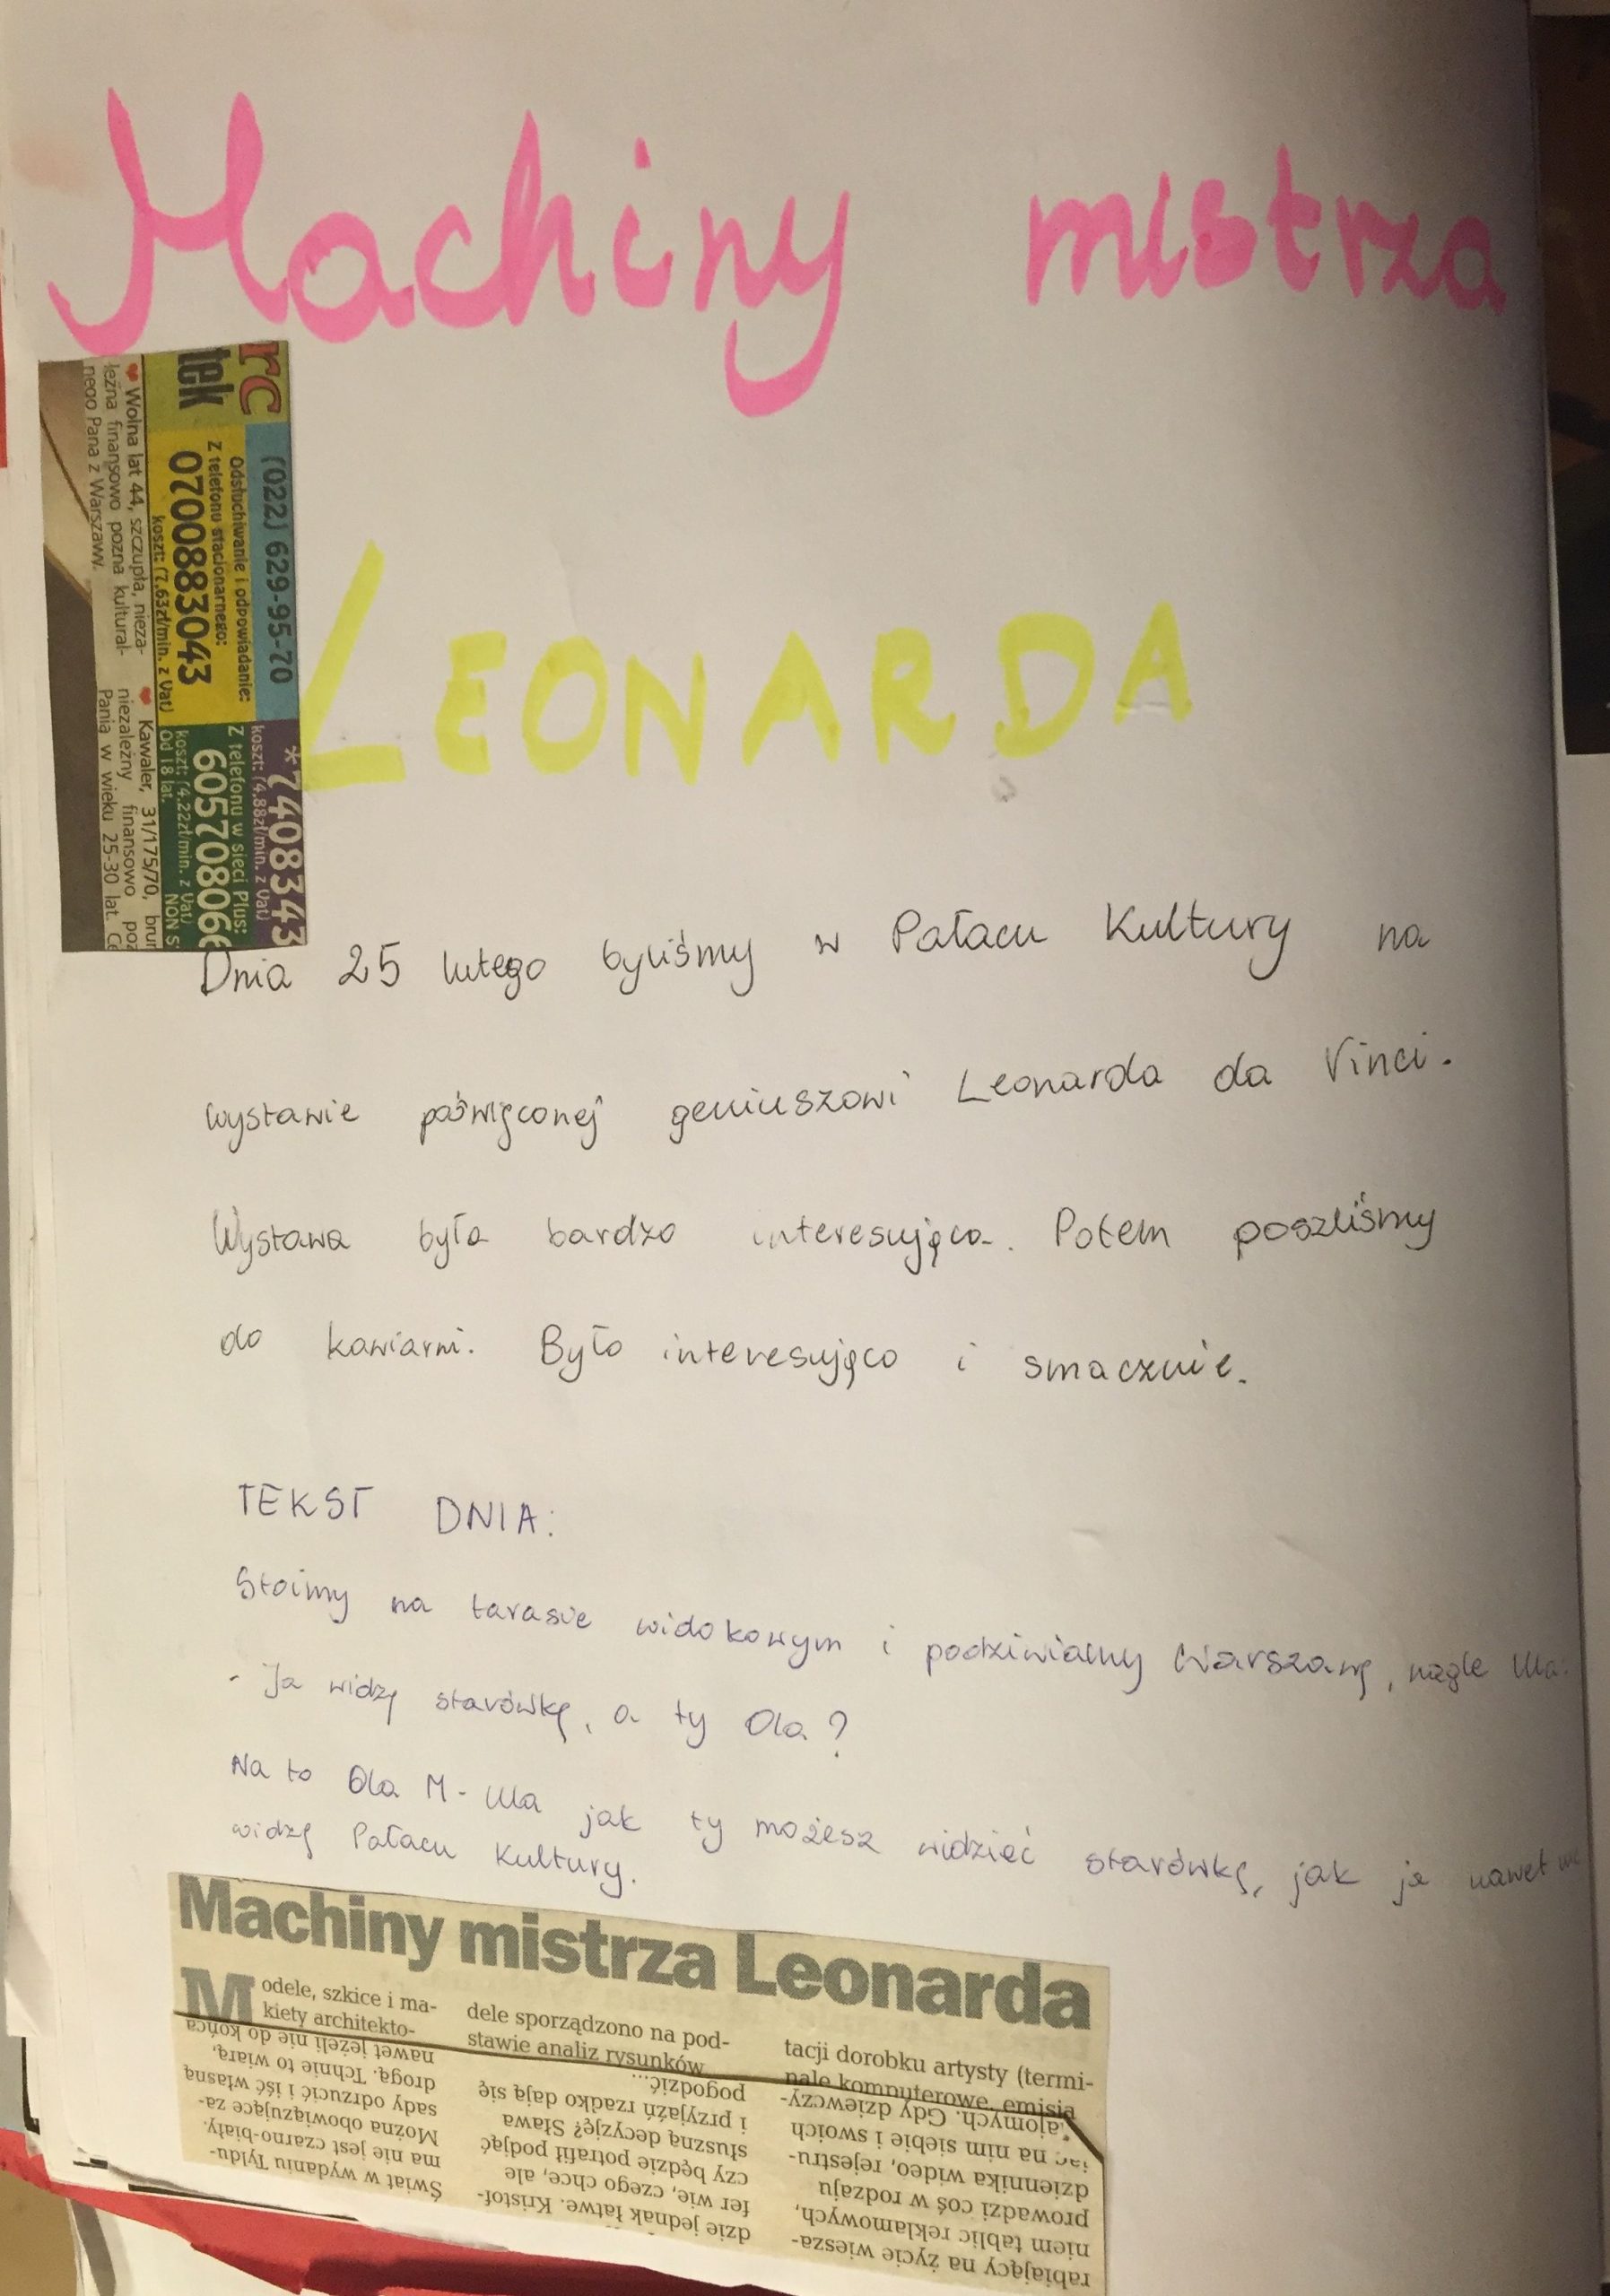 Machiny mistrza
LEONARDA
rc
tek
(022) 629-95-70
Odsłuchiwanie i odpowiadanie:
Z telefonu stacjonarnego:
0700883043
koszt: (7,63zł/min. z Vat)
*7408343
koszt: (4,88zł/min. z Vat)
Z telefonu w sieci Plus:
60570806
koszt: (4,22zł/min. z Vat)
Od 18 lat. NON S
Wolna lat 44, szczupła, nieza-
leżna finansowo pozna kultural-
nego Pana z Warszawy.
Kawaler, 31/175/70, brun
niezależny finansowo poz
Panią w wieku 25-30 lat. Ce
Dnia 25 lutego byliśmy w Pałacu Kultury na
wystawie poświęconej geniuszowi Leonarda da Vinci.
Wystawa była bardzo interesująca. Potem poszliśmy
do kawiarni. Było interesująco i smacznie.
TEKST DNIA:
Stoimy na tarasie widokowym i podziwiamy Warszawę, nagle Ula:
- Ja widzę starówkę, a ty Ola?
Na to Ola M - Ula jak ty możesz widzieć starówkę, jak ja nawet nie
widzę Pałacu Kultury.
Machiny mistrza Leonarda
Modele, szkice i ma-
kiety architekto-
dele sporządzono na pod-
stawie analiz rysunków
tacji dorobku artysty (termi-
nale komputerowe, emisja
Świat w wydaniu Tyldu-
ma nie jest czarno-biały.
Można obowiązujące za-
sady odrzucić i iść własną
drogą. Tchnie to wiarą,
nawet jeżeli nie do końca
dzie jednak łatwe. Kristof-
fer wie, czego chce, ale
czy będzie potrafił podjąć
słuszną decyzję? Sława
i przyjaźń rzadko dają się
pogodzić...
rabiający na życie wiesza-
niem tablic reklamowych,
prowadzi coś w rodzaju
dziennika wideo, rejestru-
jąc na nim siebie i swoich
znajomych. Gdy dziewczy-